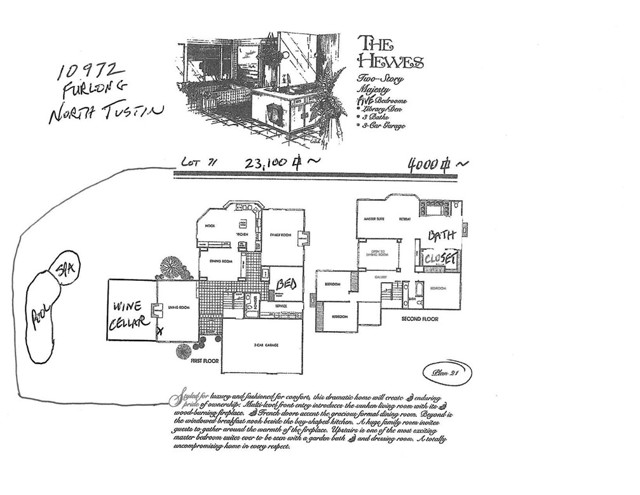 10972
FURLONG
NORTH TUSTIN
THE
HEWES
Two-Story
Majesty
FIVE Bedrooms
• Library/Den
• 3 Baths
• 3-Car Garage
LOT 71 23,100 ~ 4000 ~
POOL
SPA
NOOK
KITCHEN
FAMILY ROOM
DINING ROOM
BED
WINE
CELLAR
LIVING ROOM
X
SERVICE
3-CAR GARAGE
FIRST FLOOR
MASTER SUITE
RETREAT
BATH
CLOSET
OPEN TO
DINING ROOM
GALLERY
BEDROOM
BEDROOM
BEDROOM
SECOND FLOOR
Plan 21
Styled for luxury and fashioned for comfort, this dramatic home will create enduring
pride of ownership. Multi-level front entry introduces the sunken living room with its
wood-burning fireplace. French doors accent the gracious formal dining room. Beyond is
the windowed breakfast nook beside the bay-shaped kitchen. A huge family room invites
guests to gather around the warmth of the fireplace. Upstairs is one of the most exciting
master bedroom suites ever to be seen with a garden bath and dressing room. A totally
uncompromising home in every respect.